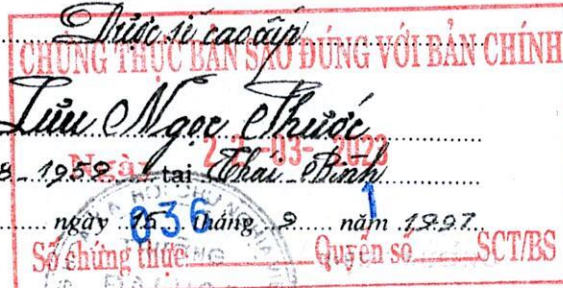 Dược sĩ cao cấp
CHỨNG THỰC BẢN SAO ĐÚNG VỚI BẢN CHÍNH
Lưu Ngọc Thước
8-1959 tại Thái Bình
Ngày 22-03-2023
ngày 15 tháng 9 năm 1997
036 1
Số chứng thực Quyển số SCT/BS